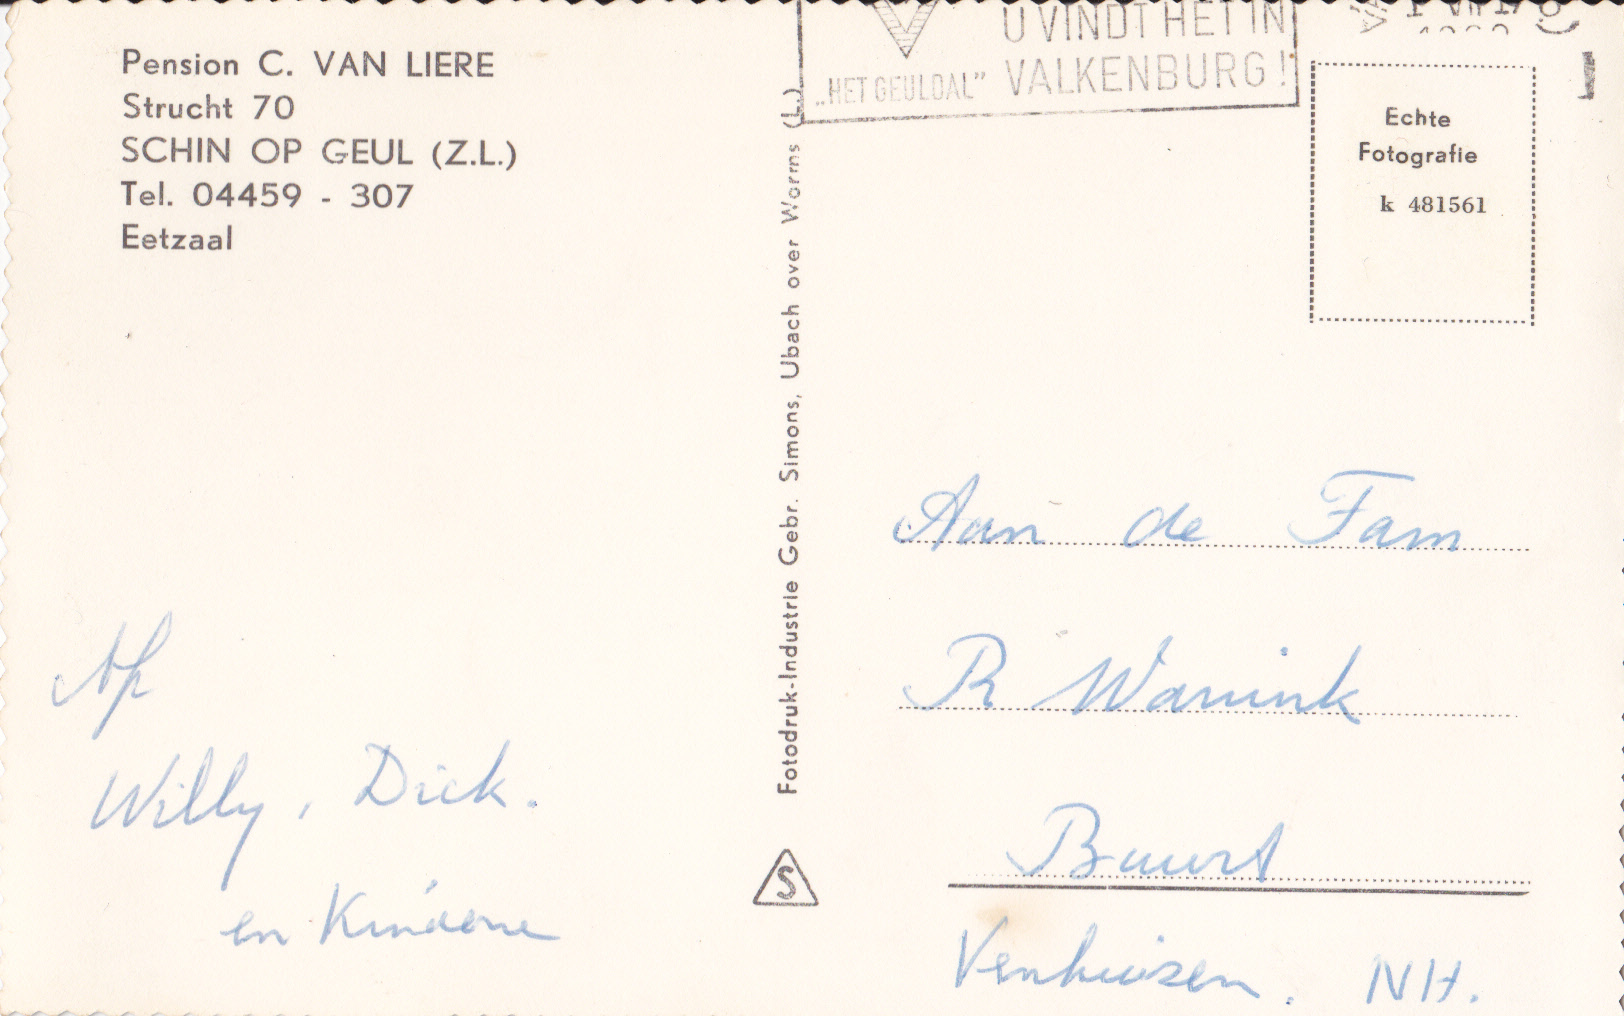 Pension C. VAN LIERE
Strucht 70
SCHIN OP GEUL (Z.L.)
Tel. 04459 - 307
Eetzaal
Willy, Dick.
en Kinderen
Fotodruk-Industrie Gebr. Simons, Ubach over Worms (L.)
S
U VINDT HET IN
„HET GEULDAL” VALKENBURG!
Echte
Fotografie
k 481561
Aan de Fam
R Wanink
Buurt
Venhuizen. NH.